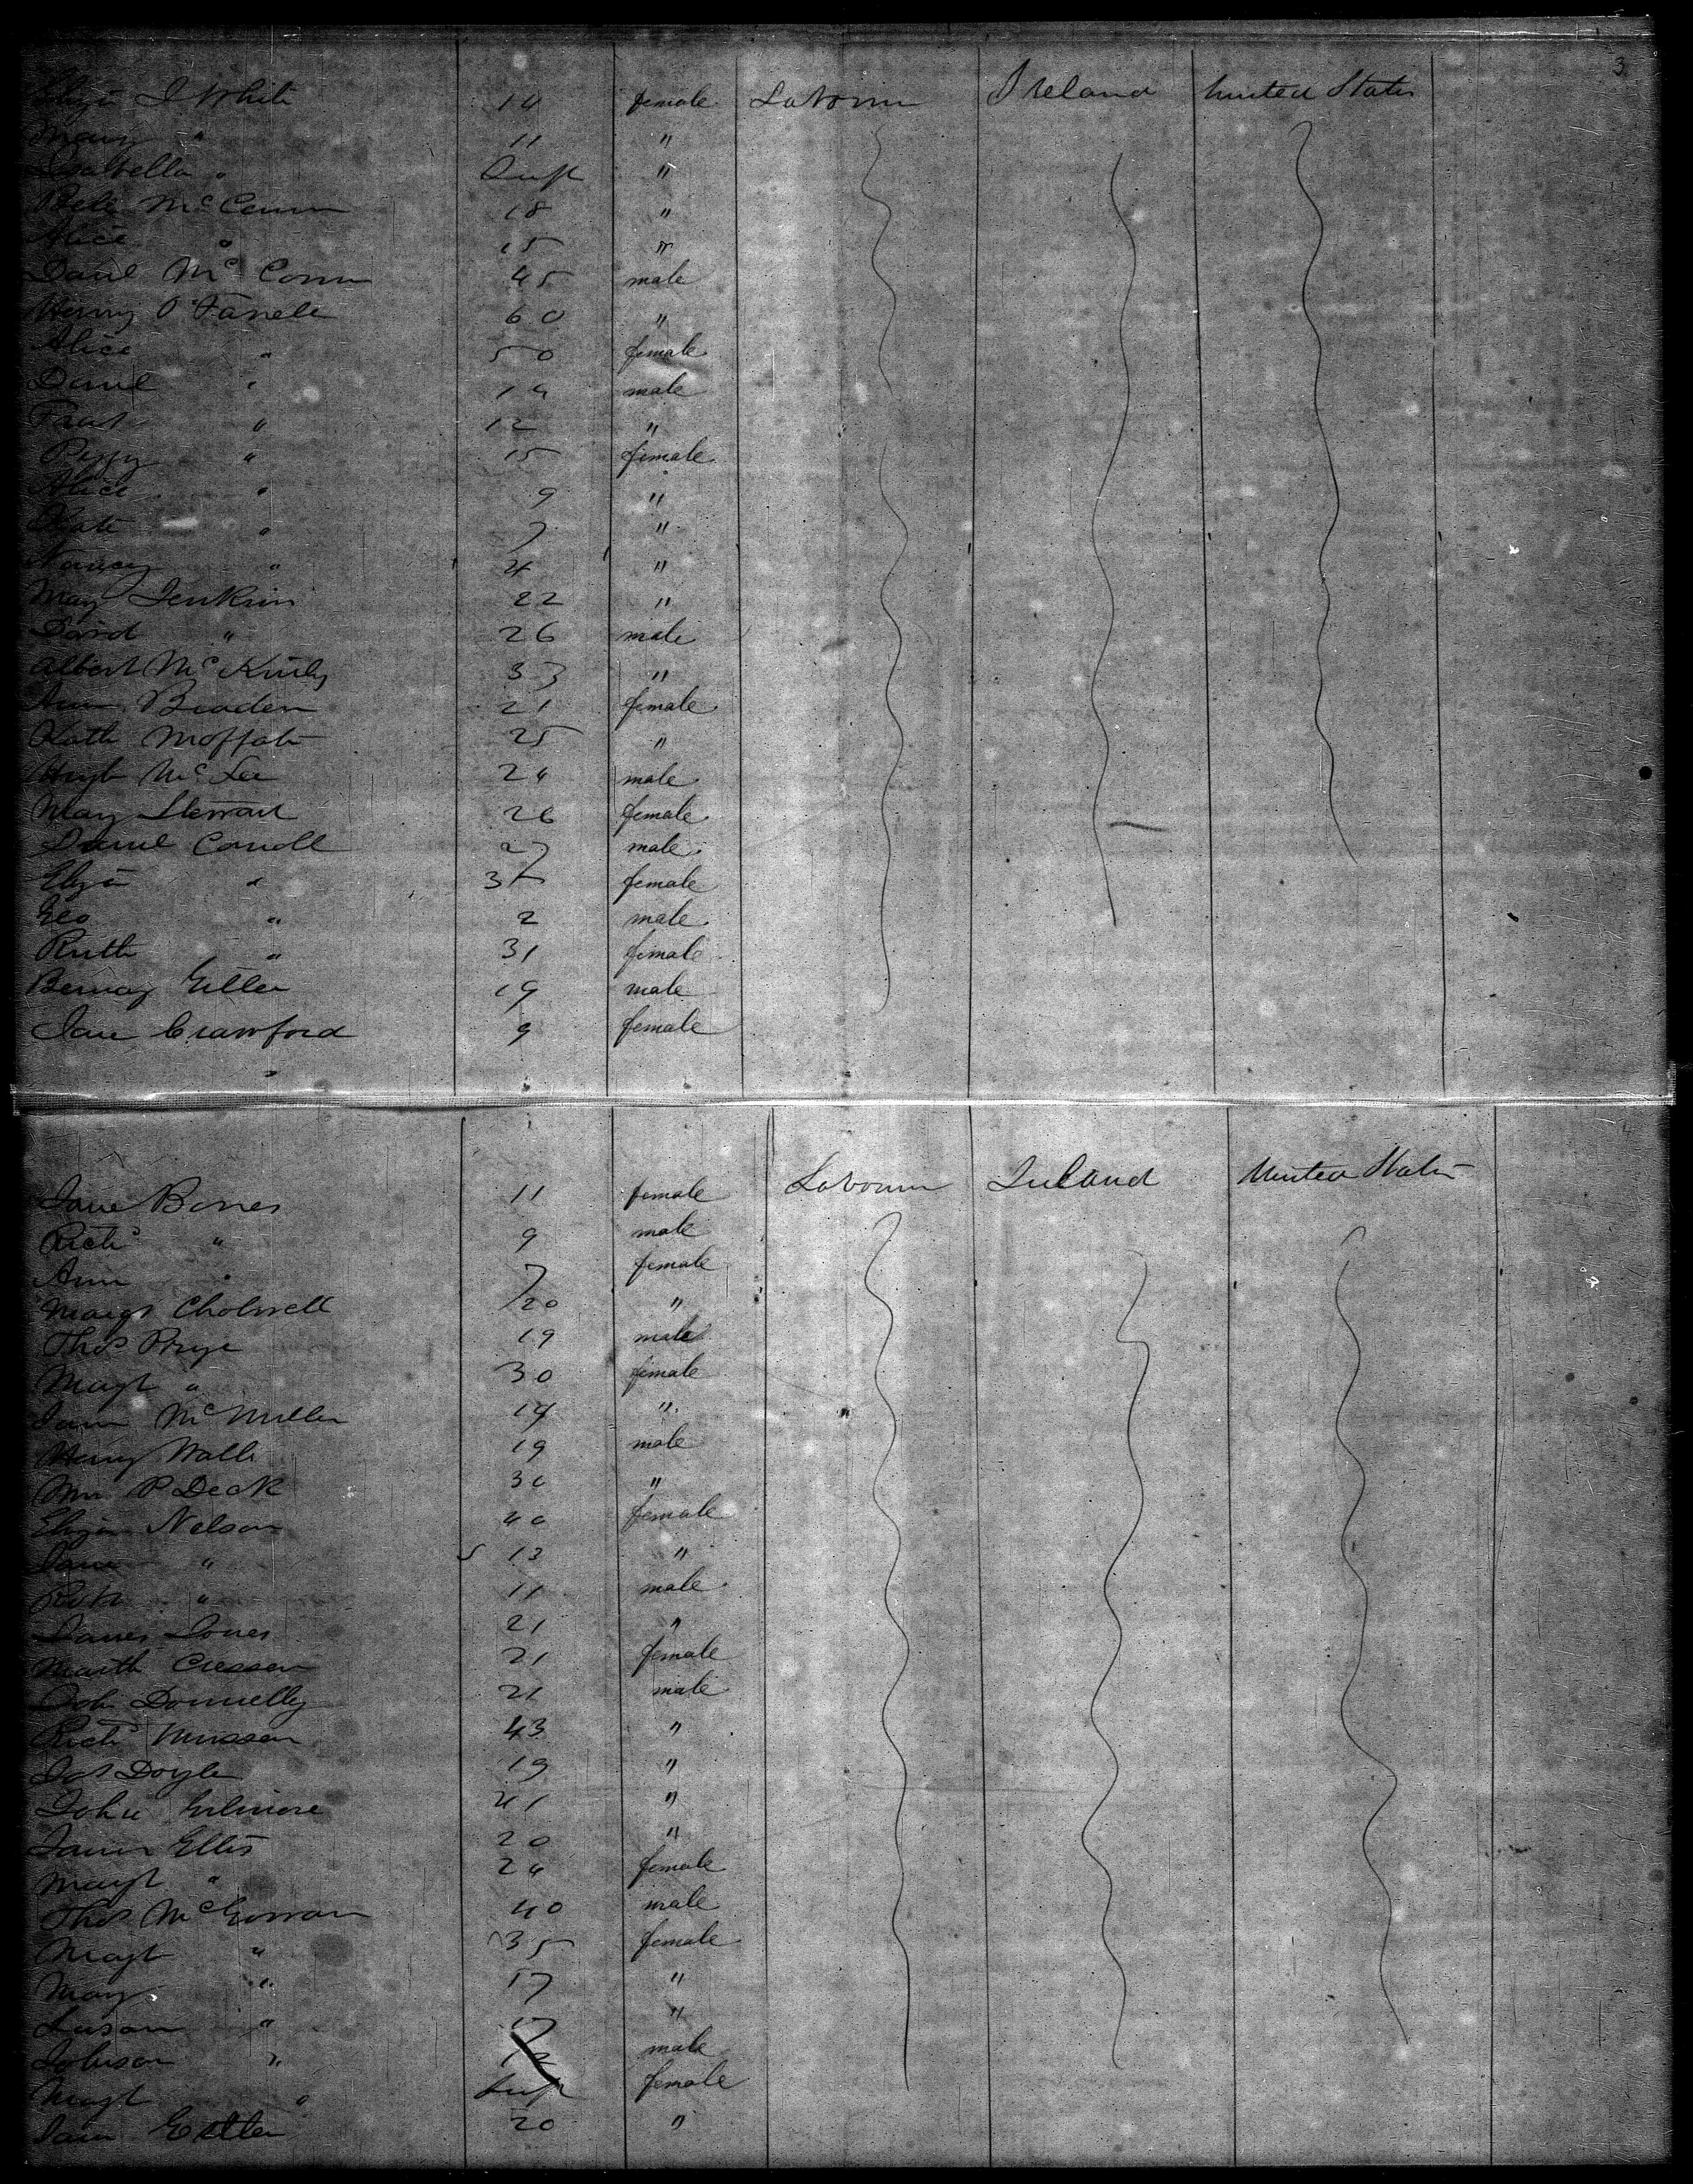 3
Eliza J White 14 female Labourer Ireland United States
Mary " 11 "
Isabella " Inft "
Bele McCann 18 "
Alice " 15 "
Danl McConn 45 male
Henry O'Farrele 60 "
Alice " 50 female
Danl " 14 male
" 12 "
Peggy " 15 female
Alice " 9 "
Kate " 7 "
Nancy " 4 "
Mary Jenkins 22 "
David " 26 male
Albert McKinly 33 "
Ann Braden 21 female
Kath Moffatt 25 "
Hugh McLee 24 male
Mary Stewart 26 female
Daniel Carroll 27 male
Eliza " female
Geo " 2 male
Ruth " 31 female
Bernay 19 male
Jane Crawford 9 female
Jane Bones 11 female Labourer Ireland United States
Richd " 9 male
Ann " 7 female
Margt Cholwell 20 "
Thos Prye 19 male
Margt " 30 female
Jane McMullen 19 "
Henry Walls 19 male
Wm P Deck 30 "
Eliza Nelson 40 female
Jane " 13 "
Robt " 11 male
James Jones 21 "
Marth Cressen 21 female
Robt Donnelly 21 male
Richd Musson 43 "
Jas Doyle 19 "
John Gilmore 41 "
James Ellis 20 "
Margt " 24 female
Thos McGowan 40 male
Margt " 35 female
Mary " 17 "
Susan " "
Johnson " male
Margt " Inft female
Jane 20 "